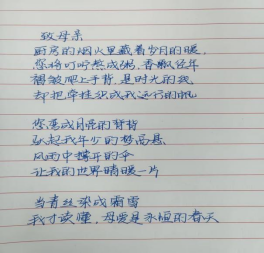 致母亲
厨房的烟火里藏着岁月的暖,
您将叮咛熬成粥,香飘经年
褶皱爬上手背,是时光的线
却把牵挂织成我远行的帆
您弯成月亮的脊背
驮起我年少的梦高悬
风雨中撑开的伞
让我的世界晴暖一片
当青丝染成霜雪
我才读懂,母爱是永恒的春天